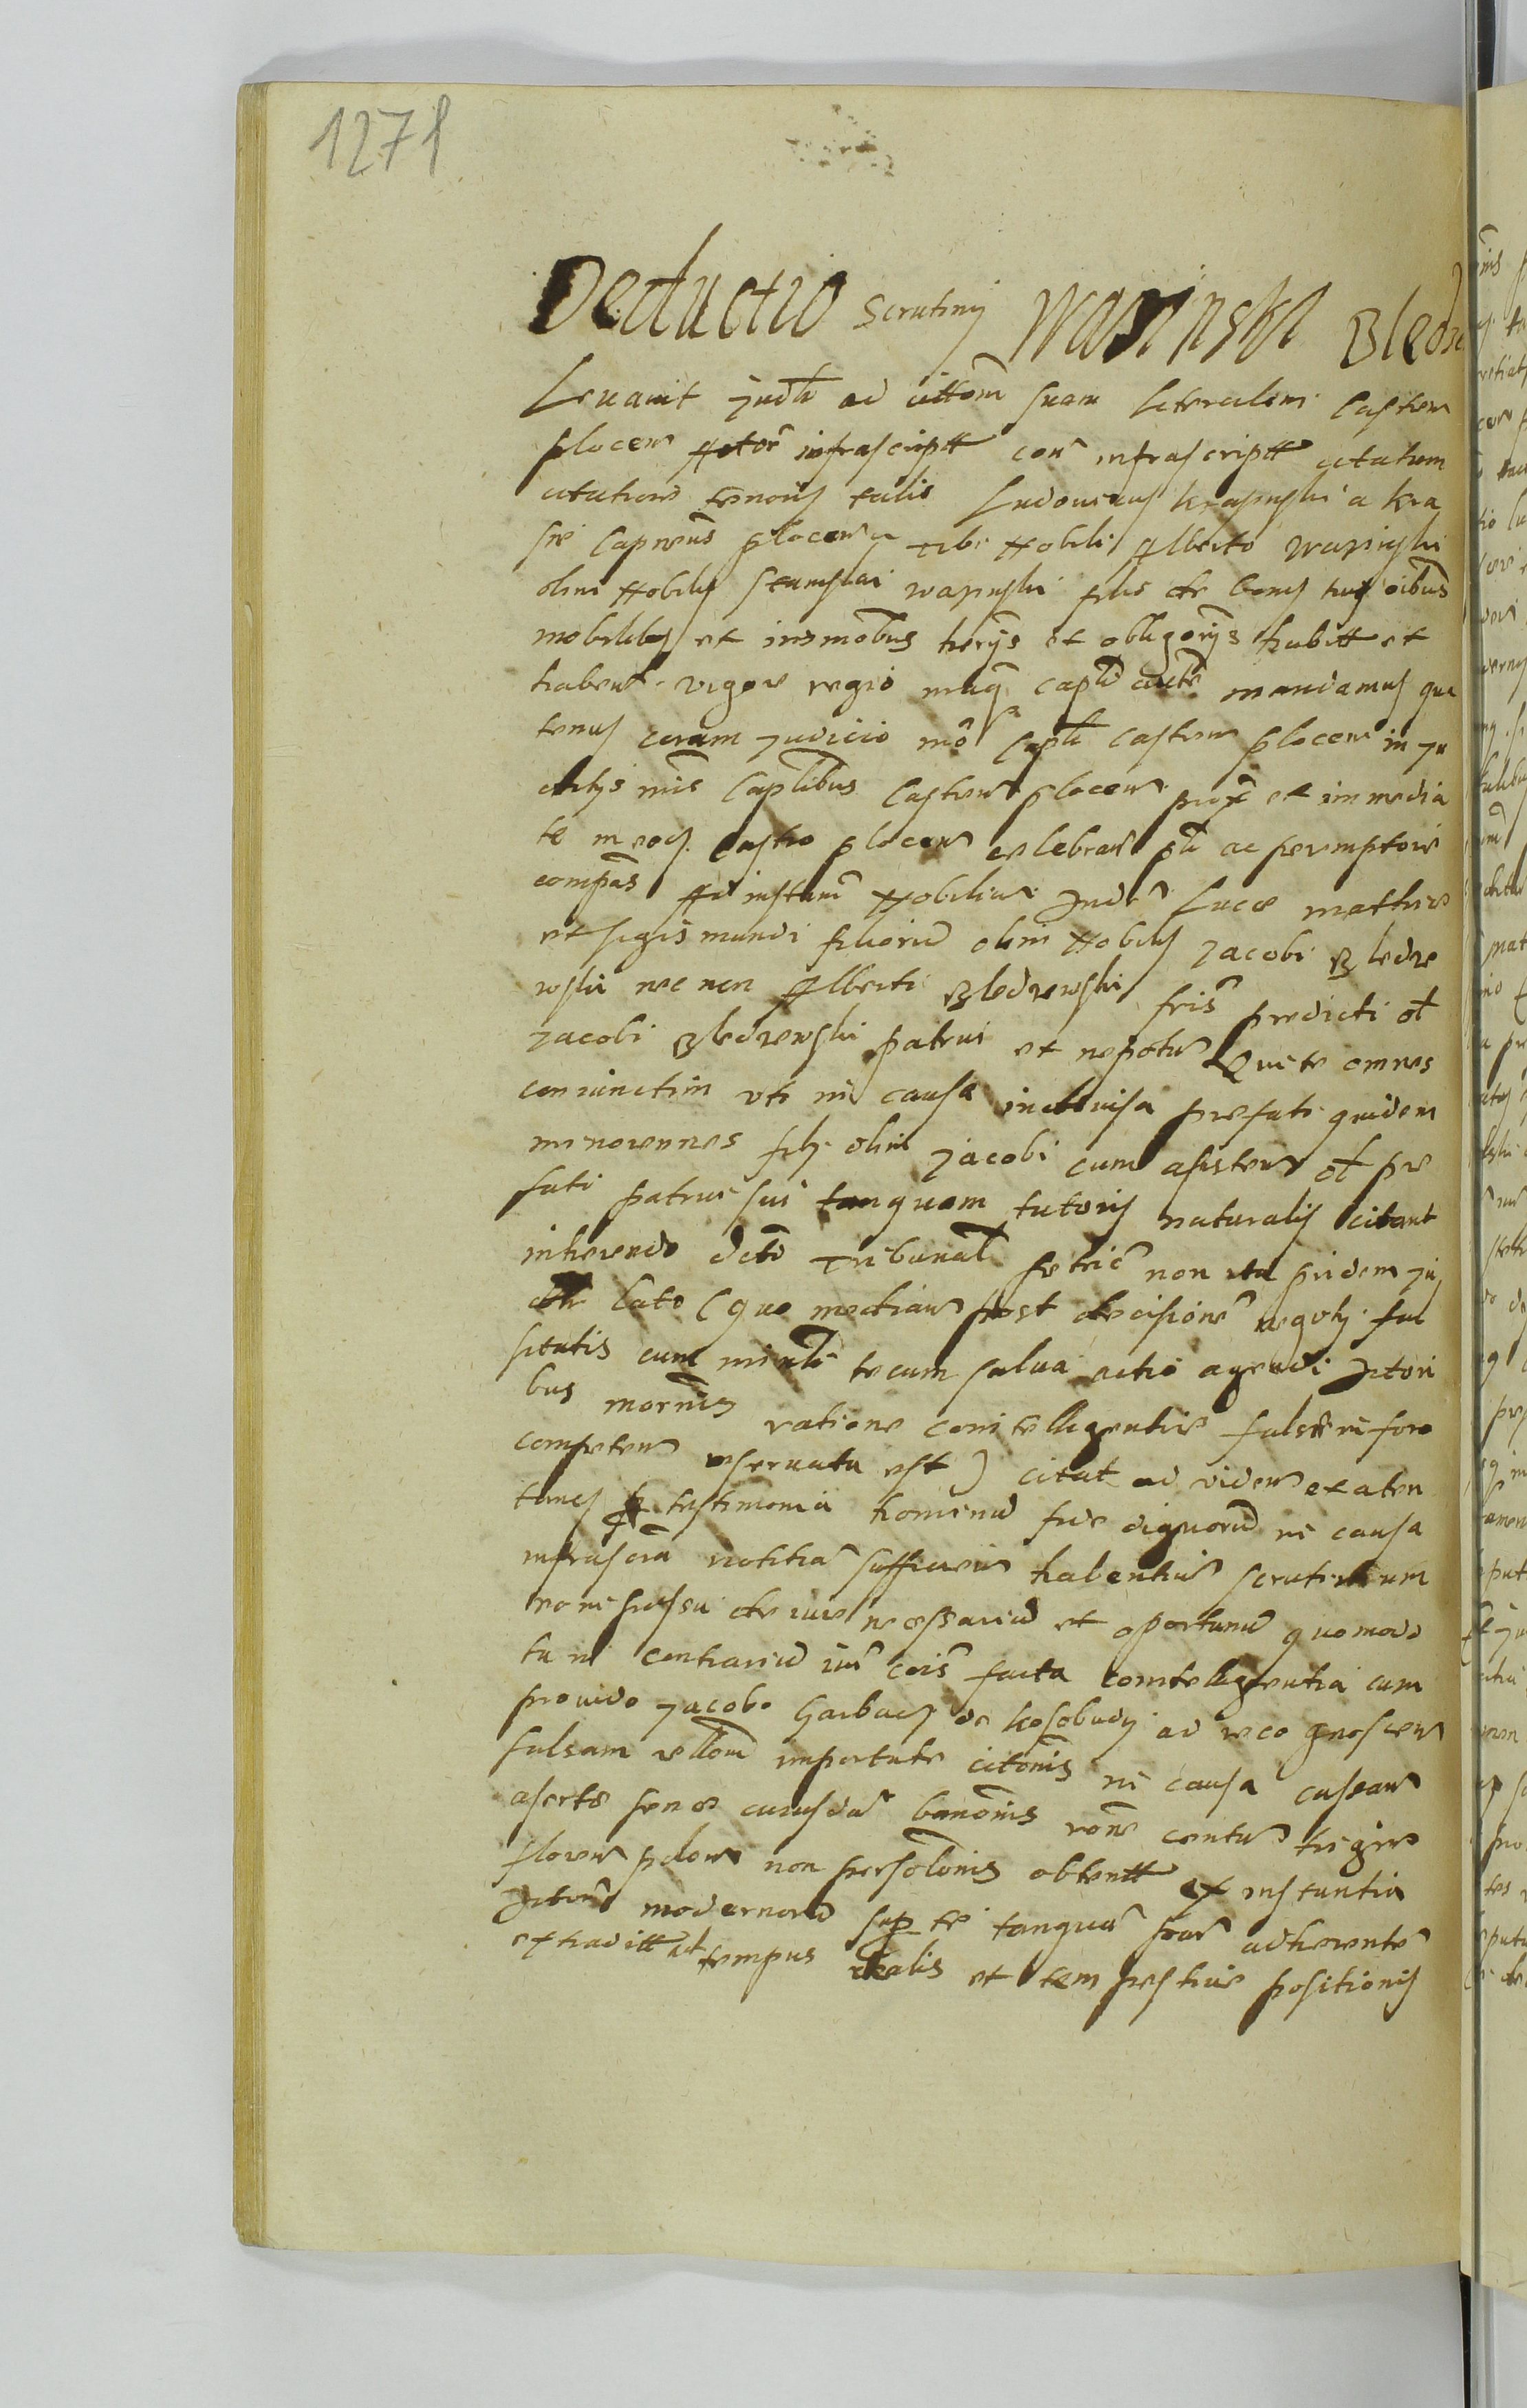 1271
Deductio Scrutinij Wasinski Bledze
Levavit judtr ad cittom suam literalem Castren
plocen Actor infrascriptt con infrascriptt citatum
citations tenoris talis Ludovicus Krasinski a Kra
sne Capneus plocen tibi Nobili Alberto Wasinski
olim Nobilis Stanislai wasinski filio de bonis tuis oibus
mobilibus et inmobus herijs et obligorijs habitt et
habent vigore regio meaq captli aucte mandamus qua
tenus coram judicio mo Captli castren plocen in ju
dicijs mis Captlibus Castren plocen prox et immedia
te in eods castro plocen celebran ptr ac peremptorie
compas Ad instam Nobilium Judm Lucæ mathiæ
et sigismundi filiorum olim Nobilis Jacobi Bledze
wski nec non Alberti Bledzewski fris predicti ol
Jacobi Bledzewski patrui et nepotum Qui te omnes
coniunctim uti in causa indivisa prefati quidem
minorennes filij olim Jacobi cum asisten ol pre
fati patrui sui tanquam tutoris naturalis citant
inherendo dcto Tribunal petric non ita pridem
lato (quo median post decisione negotij fal
sitatis cum tecum salva actio agendi Actori
bus mornis ratione cointelligentiæ falsæ in foro
competen reservata est) citat ad viden et aten
tancs testimonia hominum fide dignorum in causa
infrascra notitiam sufficien habentium scrutinium
eo in passu de iure necessarium et oportunum quomodo
tu in contrarium iuri cois facta cointelligentia cum
provido Jacobo Garbacz de kosobudy ad recognoscen
falsam rellom importate citonis in causa cassan
asertæ penæ cuiusdam banonis rone centum trigin
floren polon non persolonis obtentt ex instantia
Actorum modernorum sup te tanquam par adherente
extraditt ad tempus realis et tempestivæ positionis